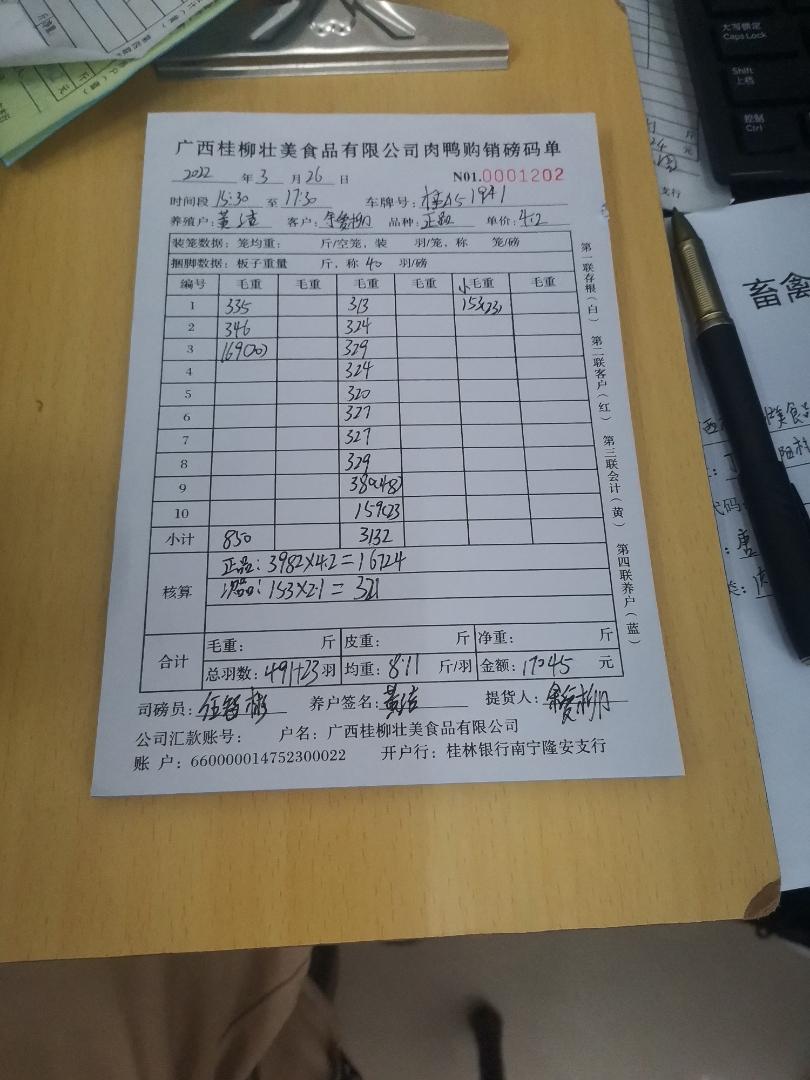 广西桂柳壮美食品有限公司肉鸭购销磅码单
2022 年 3 月 26 日 N01.0001202
时间段 15:30 至 17:30 车牌号: 桂A51941
养殖户: 黄 客户: 品种: 正品 单价: 4.2
装笼数据: 笼均重: 斤/空笼, 装 羽/笼, 称 笼/磅
捆脚数据: 板子重量 斤, 称 40 羽/磅
编号 毛重 毛重 毛重 毛重 小毛重 毛重
1 335 313 153(23)
2 346 324
3 169(20) 329
4 324
5 320
6 327
7 327
8 329
9 380(48)
10 159(23
小计 850 3132
核算
正品: 3982×4.2=16724
次品: 153×2.1= 321
合计
毛重: 斤 皮重: 斤 净重: 斤
总羽数: 491+23 羽 均重: 8.11 斤/羽 金额: 17045 元
司磅员: 养户签名: 黄 提货人:
公司汇款账号: 户名: 广西桂柳壮美食品有限公司
账 户: 660000014752300022 开户行: 桂林银行南宁隆安支行
第一联存根(白) 第二联客户(红) 第三联会计(黄) 第四联养户(蓝)
大写锁定
Caps Lock
Shift
上档
控制
Ctrl
畜禽
支行